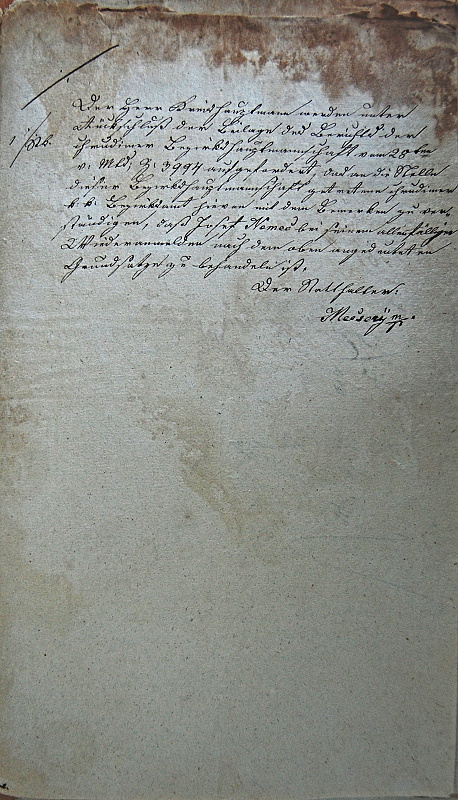 Der Herr Kreishauptmann werden unter
Rückschluß der Beilage des Berichts der
Chrudimer Bezirkshauptmannschaft vom 28ten
v. Mts. Z. 3994 aufgefordert, das an die Stelle
dieser Bezirkshauptmannschaft getretene Chrudimer
k. k. Bezirksamt hievon mit dem Bemerken zu ver-
ständigen, daß Josef Nemec bei seinem allenfälligen
Wiederanmelden nach dem oben angedeuteten
Grundsatze zu behandeln ist.
Der Statthalter:
Mecséry m/p.